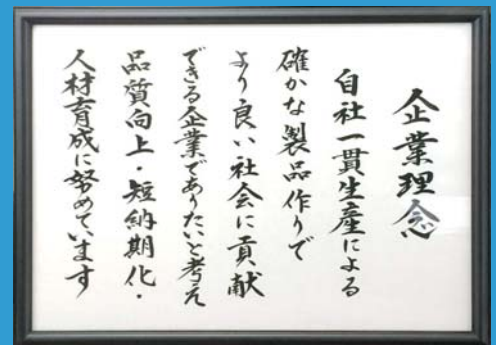 企業理念
自社一貫生産による
確かな製品作りで
より良い社会に貢献
できる企業でありたいと考え
品質向上・短納期化・
人材育成に努めています